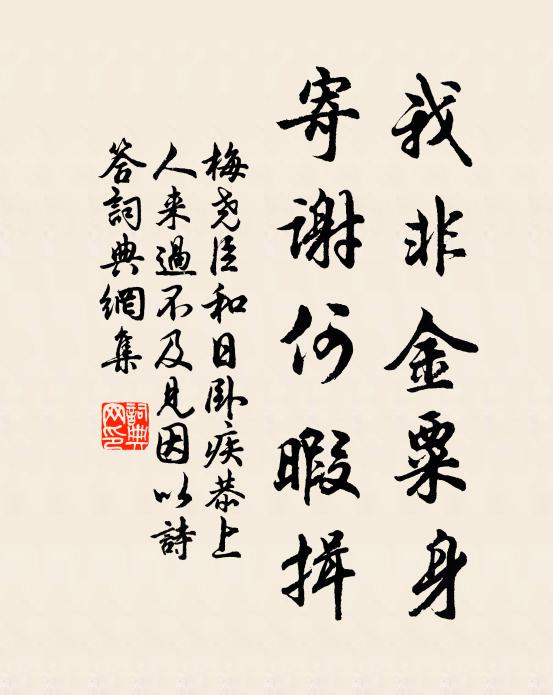 我非金粟身
寄谢何暇揖
梅尧臣和日卧疾恭上
人来過不及見因以詩
答詞典網集
詞典網印